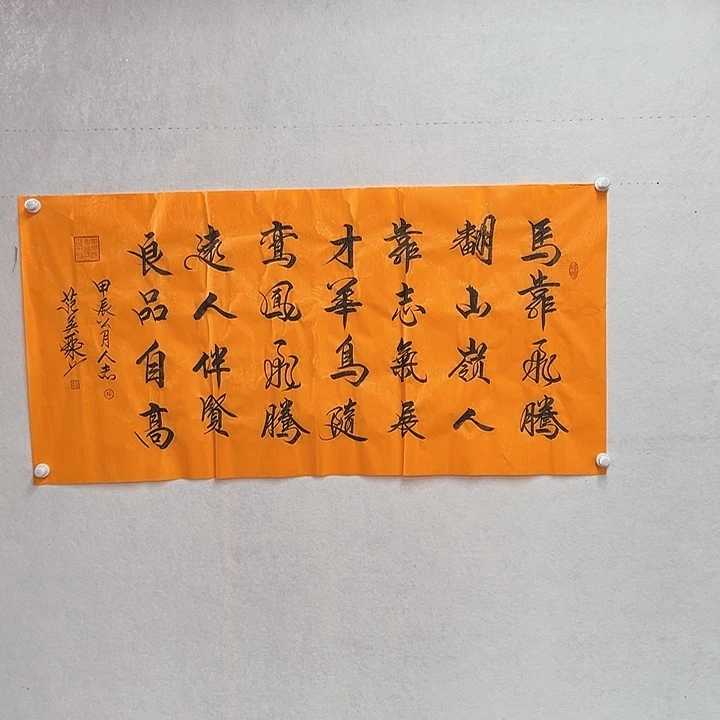 馬靠飛騰
翻山嶺人
靠志氣展
才華鳥隨
鸞鳳飛騰
遠人伴賢
良品自高
甲辰公月人志
范美